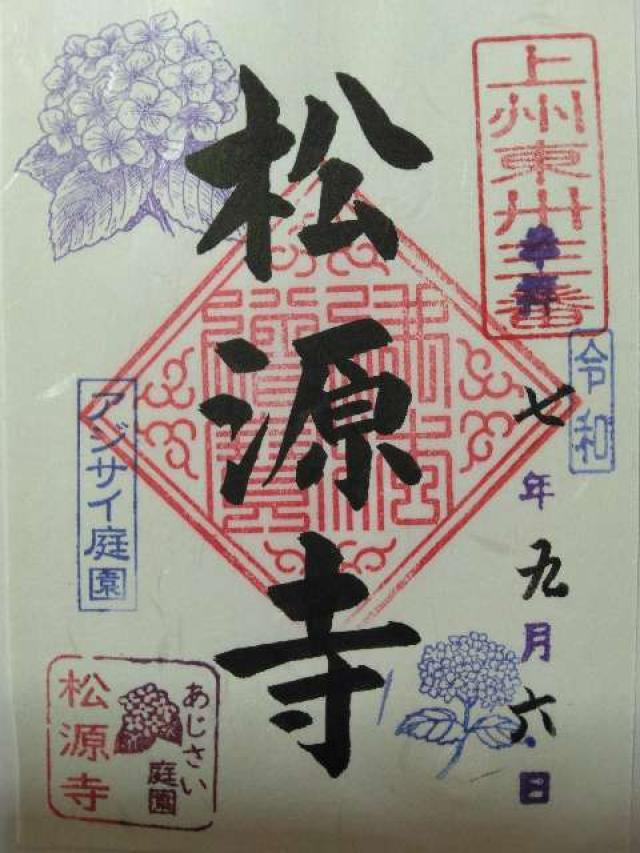 上州東卅三番
奉拝
令和
七年九月六日
松源寺
佛法僧寳
アジサイ庭園
あじさい
庭園
松源寺